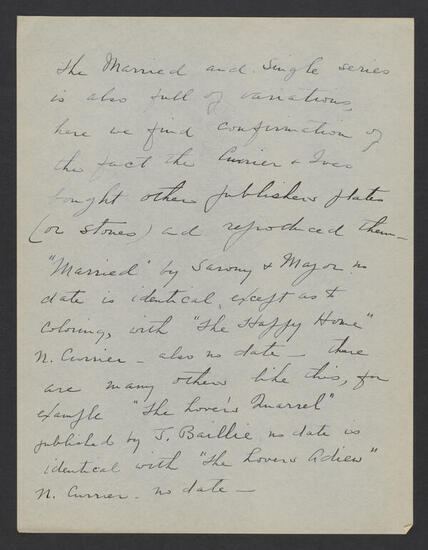 The Married and Single series
is also full of variations,
here we find confirmation of
the fact the Currier & Ives
bought other publishers plates
(or stones) and reproduced them—
"Married" by Sarony & Major no
date is identical, except as to
coloring, with "The Happy Home"
N. Currier — also no date — there
are many others like this, for
example "The Lover's Quarrel"
published by J. Baillie no date is
identical with "The Lovers Adieu"
N. Currier — no date —